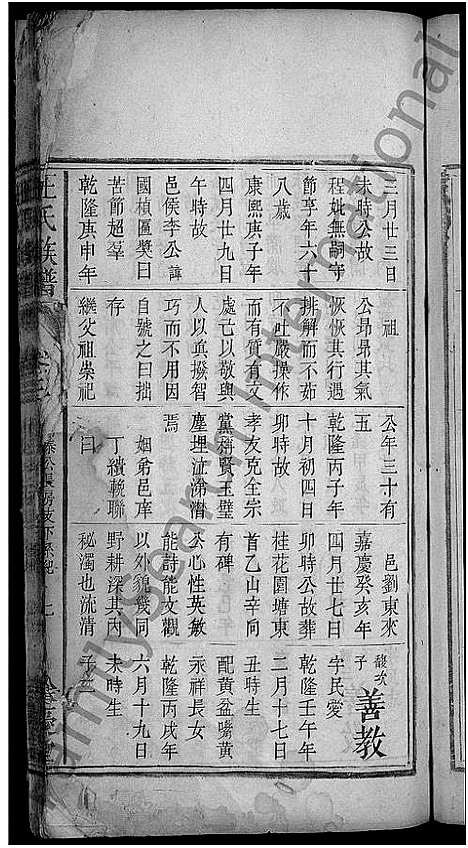 三月廿三日
未時公故
程妣無嗣守
節享年六十
八歲
康熙庚子年
四月廿九日
午時故
邑侯李公諱
國楨匾奬曰
苦節超羣
乾隆庚申年
祖
公昂昂其氣
恢恢其行遇
排解而不茹
不吐嚴操作
而有質有文
處己以敬與
人以眞撥智
巧而不用因
自號之曰拙
存
繼父祖崇祀
公年三十有
五
乾隆丙子年
十月初四日
卯時故
孝友克全宗
黨賢玉璧
塵埋泣涕潸
焉
姻弟邑庠
丁績輓聯
曰
邑劉東來
嘉慶癸亥年
四月廿七日
卯時公故葬
桂花園塘東
首乙山辛向
有碑
公心性英敏
能詩能文觀
以外貌幾同
野耕深其内
秘濁也流清
馥次子 善教
字民愛
乾隆壬午年
二月十七日
丑時生
配黃盆嘴黃
永祥長女
乾隆丙戌年
六月十九日
未時生
子三
氏族譜
familysearch International